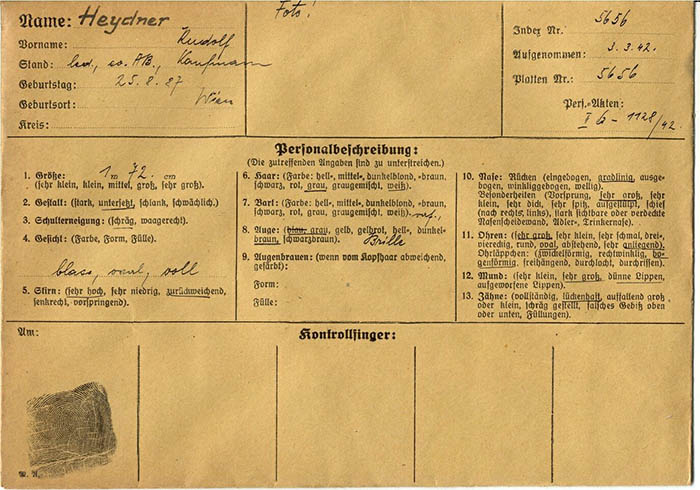 Name: Heydner
Vorname: Rudolf
Stand: led., ev. AB., Kaufmann
Geburtstag: 25. 8. 87
Geburtsort: Wien
Kreis:
Foto!
Index Nr. 5656
Aufgenommen: 3. 3. 42.
Platten Nr.: 5656
Pers.-Akten:
1128/42.
Personalbeschreibung:
(Die zutreffenden Angaben sind zu unterstreichen.)
1. Größe: 1 m 72 cm
(sehr klein, klein, mittel, groß, sehr groß).
2. Gestalt: (stark, untersetzt, schlank, schwächlich).
3. Schulterneigung: (schräg, waagerecht).
4. Gesicht: (Farbe, Form, Fülle).
blass, oval, voll
5. Stirn: (sehr hoch, sehr niedrig, zurückweichend,
senkrecht, vorspringend).
6. Haar: (Farbe: hell-, mittel-, dunkelblond, -braun,
schwarz, rot, grau, graugemischt, weiß).
7. Bart: (Farbe: hell-, mittel-, dunkelblond, -braun,
schwarz, rot, grau, graugemischt, weiß).
8. Auge: (blau, grau, gelb, gelbrot, hell-, dunkel-
braun, schwarzbraun). Brille
9. Augenbrauen: (wenn vom Kopfhaar abweichend,
gefärbt):
Form:
Fülle:
10. Nase: Rücken (eingebogen, gradlinig, ausge-
bogen, winkliggebogen, wellig).
Besonderheiten (Vorsprung, sehr groß, sehr
klein, sehr dick, sehr spitz, aufgestülpt, schief
(nach rechts, links), stark sichtbare oder verdeckte
Nasenscheidewand, Adler-, Trinkernase).
11. Ohren: (sehr groß, sehr klein, sehr schmal, drei-,
viereckig, rund, oval, abstehend, sehr anliegend).
Ohrläppchen: (zwickelförmig, rechtwinklig, bo-
genförmig, freihängend, durchlocht, durchrissen).
12. Mund: (sehr klein, sehr groß, dünne Lippen,
aufgeworfene Lippen).
13. Zähne: (vollständig, lückenhaft, auffallend groß
oder klein, schräg gestellt, falsches Gebiß oben
oder unten, Füllungen).
Am:
Kontrollfinger: